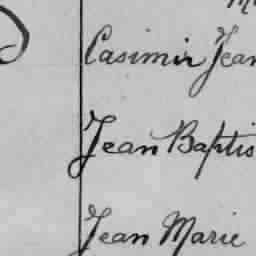 Casimir Jean
Jean Baptis
Jean Marie